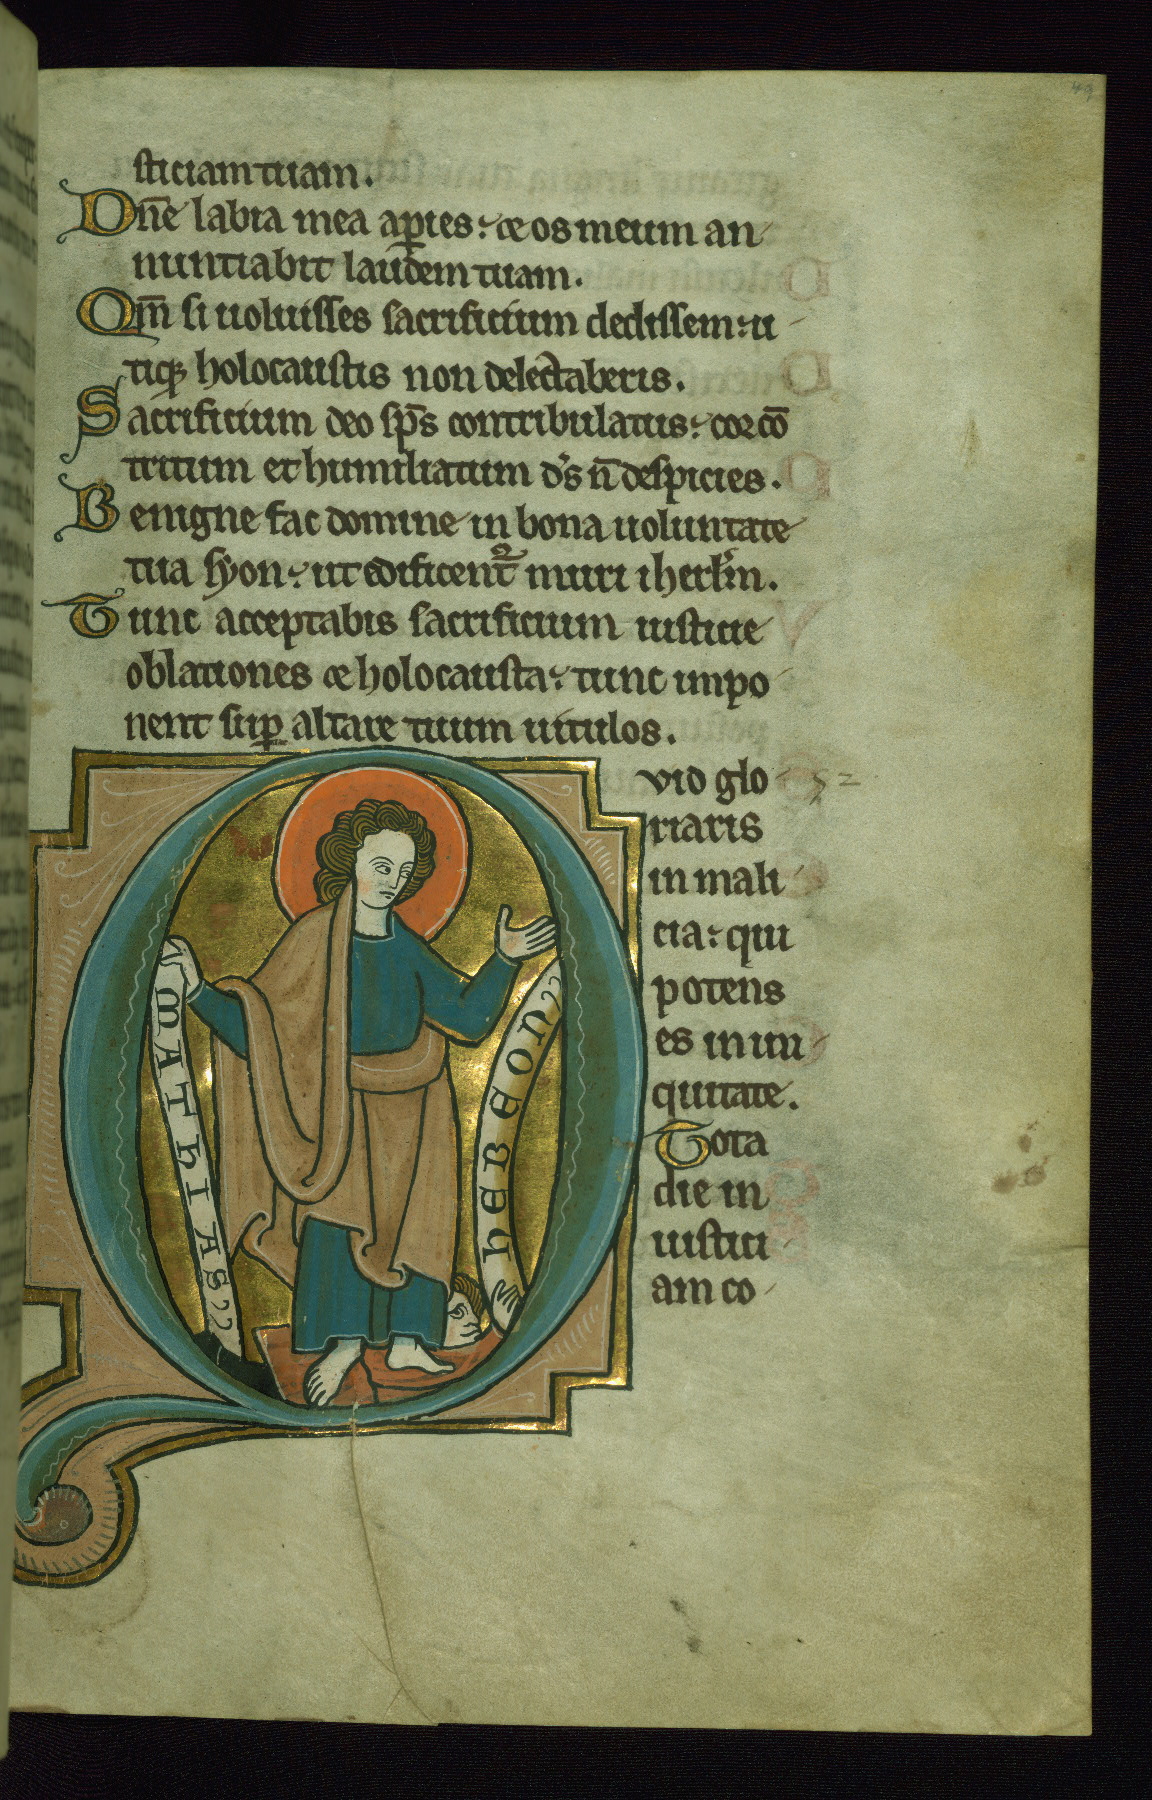 sticiam tuam.
Dn̄e labia mea ap̲ies: ⁊ os meum an
nuntiabit laudem tuam.
Qm̄ si uoluisses sacrificium dedissem: u
tiqꝫ holocaustis non delectaberis.
Sacrificium deo sp̄s contribulatus: cor cō
tritum et humiliatum d's n̄ despicies.
Benigne fac domine in bona uoluntate
tua syon: ut edificent᷑ muri iherl'm.
Tunc acceptabis sacrificium iusticie
oblationes ⁊ holocausta: tunc impo
nent sup̲ altare tuum uitulos.
Qvid glo
riaris
in mali
cia: qui
potens
es in ini
quitate.
Tota
die in
iustici
am co
MATHIAS
HEBEON